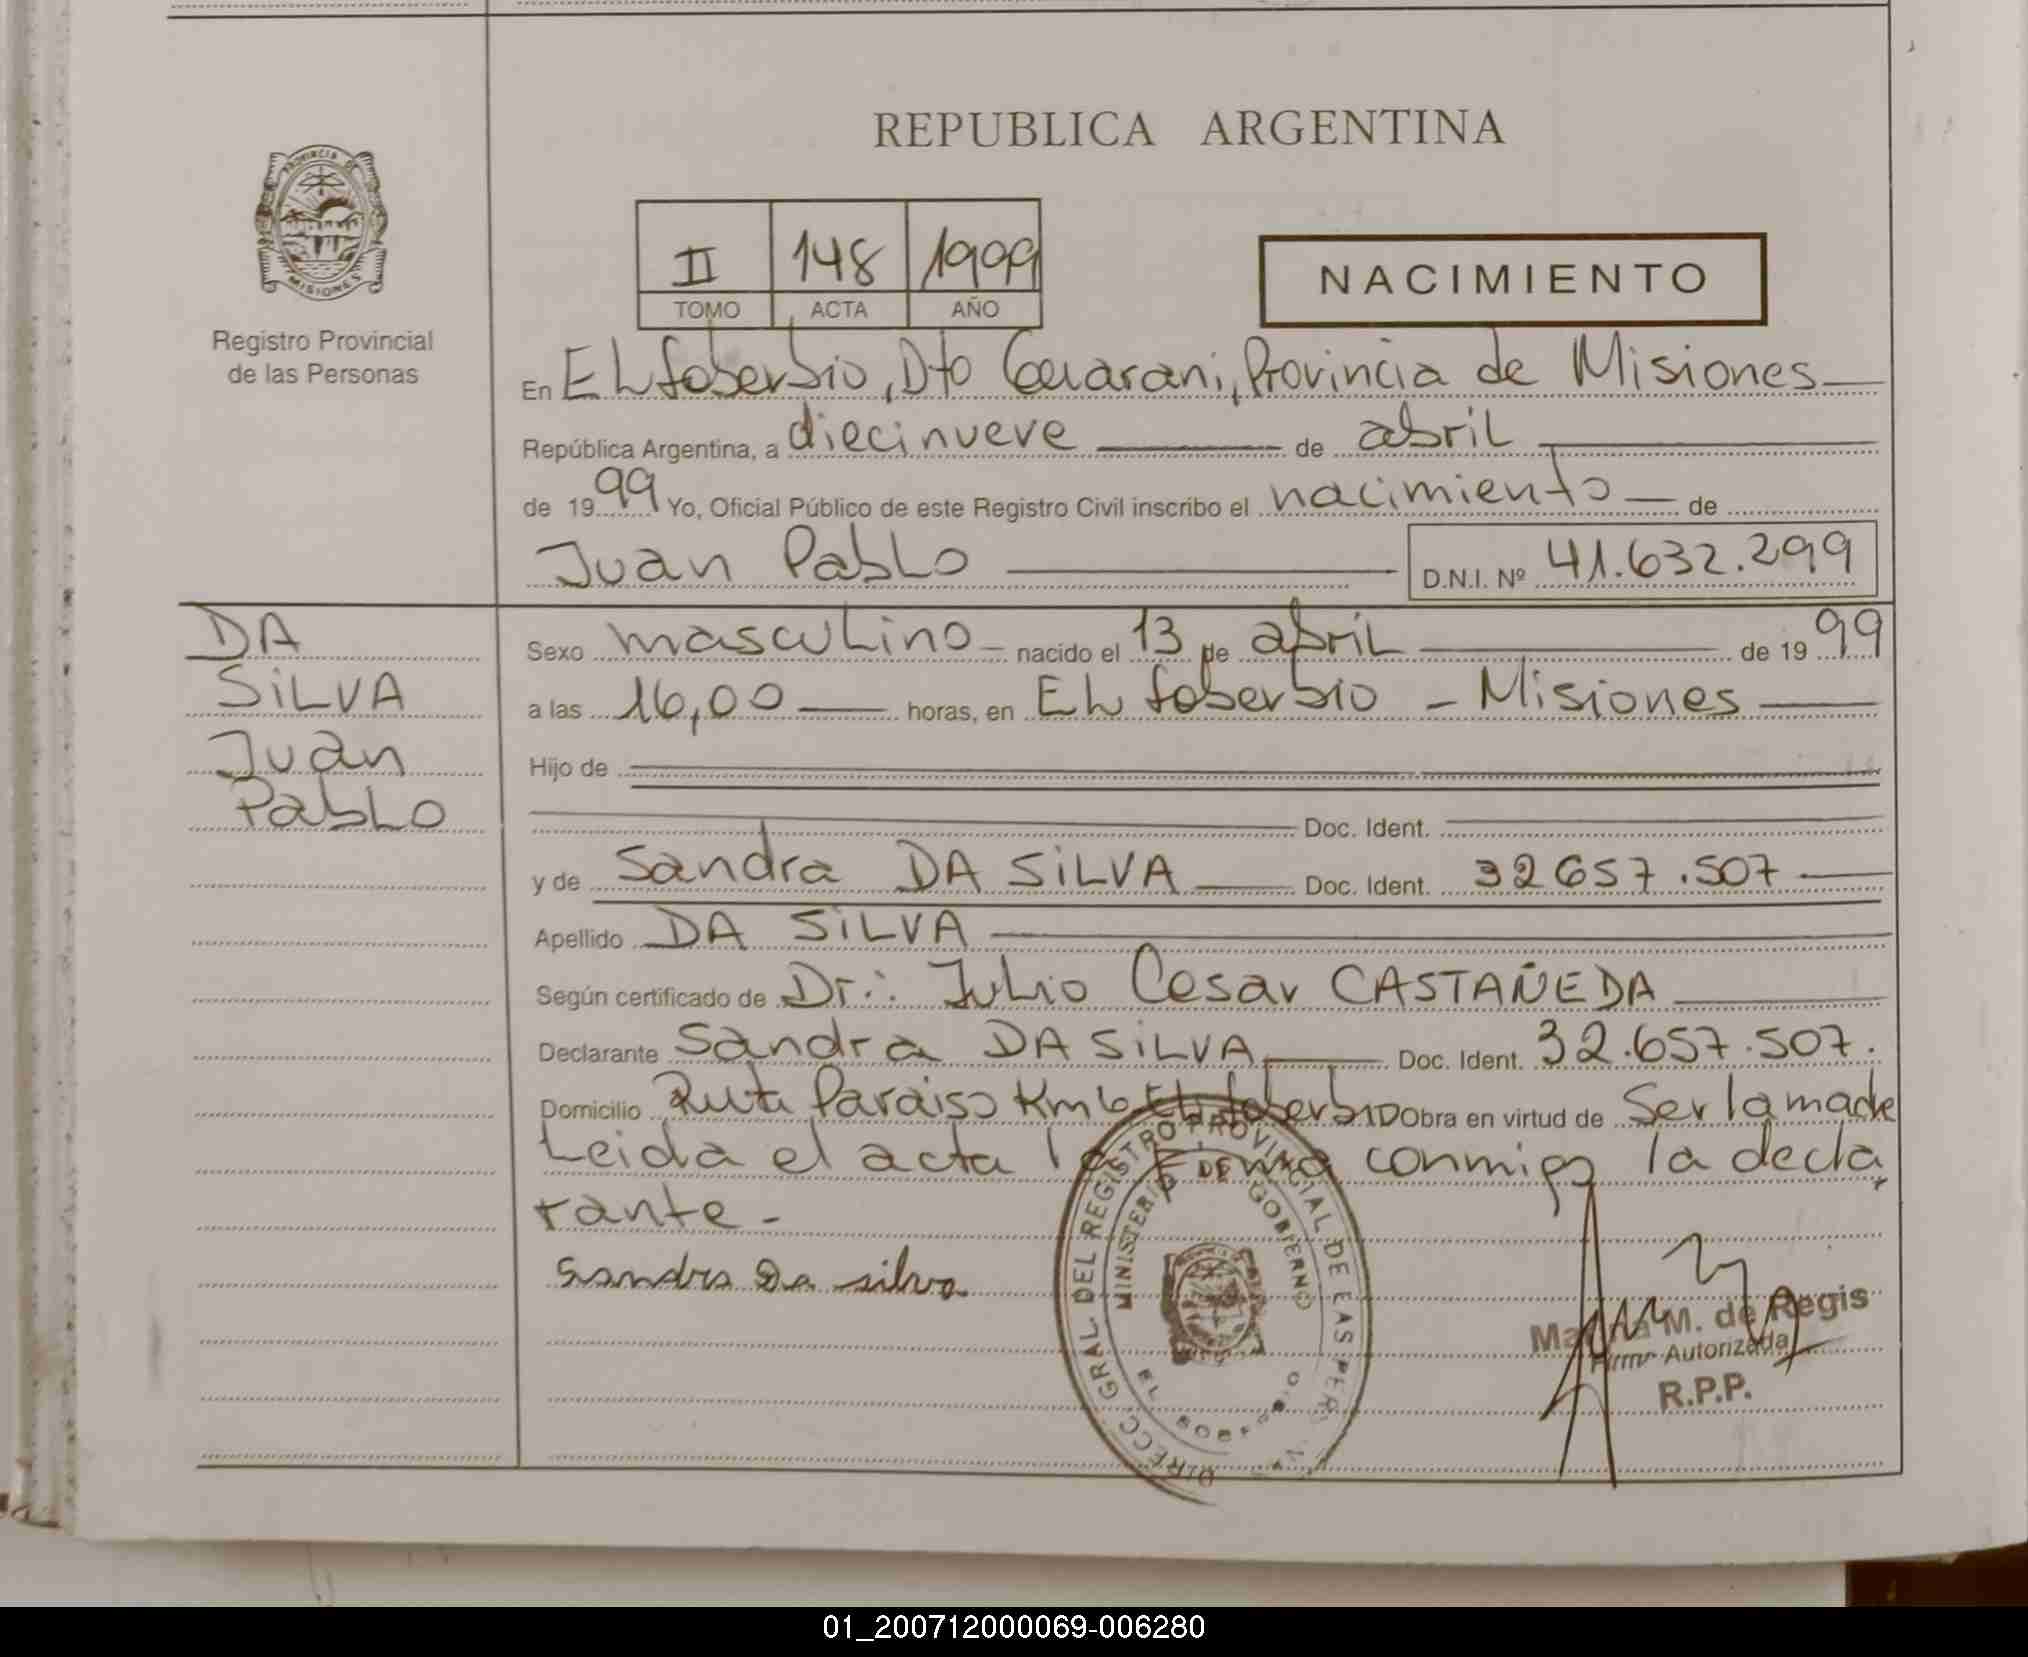 REPUBLICA ARGENTINA
PROVINCIA DE
MISIONES
Registro Provincial
de las Personas
II 148 1999
TOMO ACTA AÑO
NACIMIENTO
En EL Soberbio, Dto Guarani, Provincia de Misiones
República Argentina, a diecinueve de abril
de 1999 Yo, Oficial Público de este Registro Civil inscribo el nacimiento de
Juan Pablo D.N.I. Nº 41.632.299
DA
SILVA
Juan
Pablo
Sexo masculino nacido el 13 de abril de 1999
a las 16,00 horas, en EL Soberbio - Misiones
Hijo de
Doc. Ident.
y de Sandra DA SILVA Doc. Ident. 32657.507
Apellido DA SILVA
Según certificado de Dr.: Julio Cesar CASTAÑEDA
Declarante Sandra DA SILVA Doc. Ident. 32.657.507.
Domicilio Ruta Paraiso Km 6 EL Soberbio Obra en virtud de Ser la madre
Leida el acta la firma conmigo la decla
rante -
Sandra Da silva
DIRECC. GRAL. DEL REGISTRO PROVINCIAL DE LAS PER
MINISTERIO DE GOBIERNO
EL SOBERBIO
M. de Regis
Firma Autorizada
R.P.P.
01_200712000069-006280